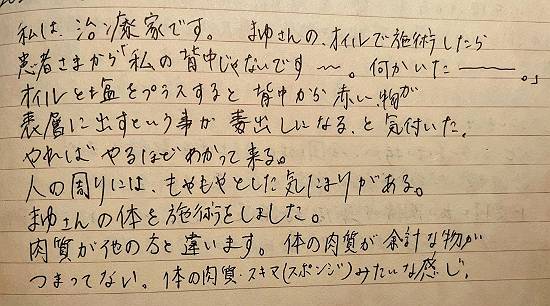 私は、治療家です。 まゆさんの、オイルで施術したら
患者さまから「私の背中じゃないです〜。何かいた———。」
オイルと塩をプラスすると 背中から 赤い物が
表層に出すという事が 毒出しになる、と 気付いた。
やればやるほどわかって来る。
人の周りには、もやもやとした気だまりがある。
まゆさんの体を施術をしました。
肉質が他の方と違います。体の肉質が余計な物が
つまってない。体の肉質・スキマ(スポンジ)みたいな感じ。